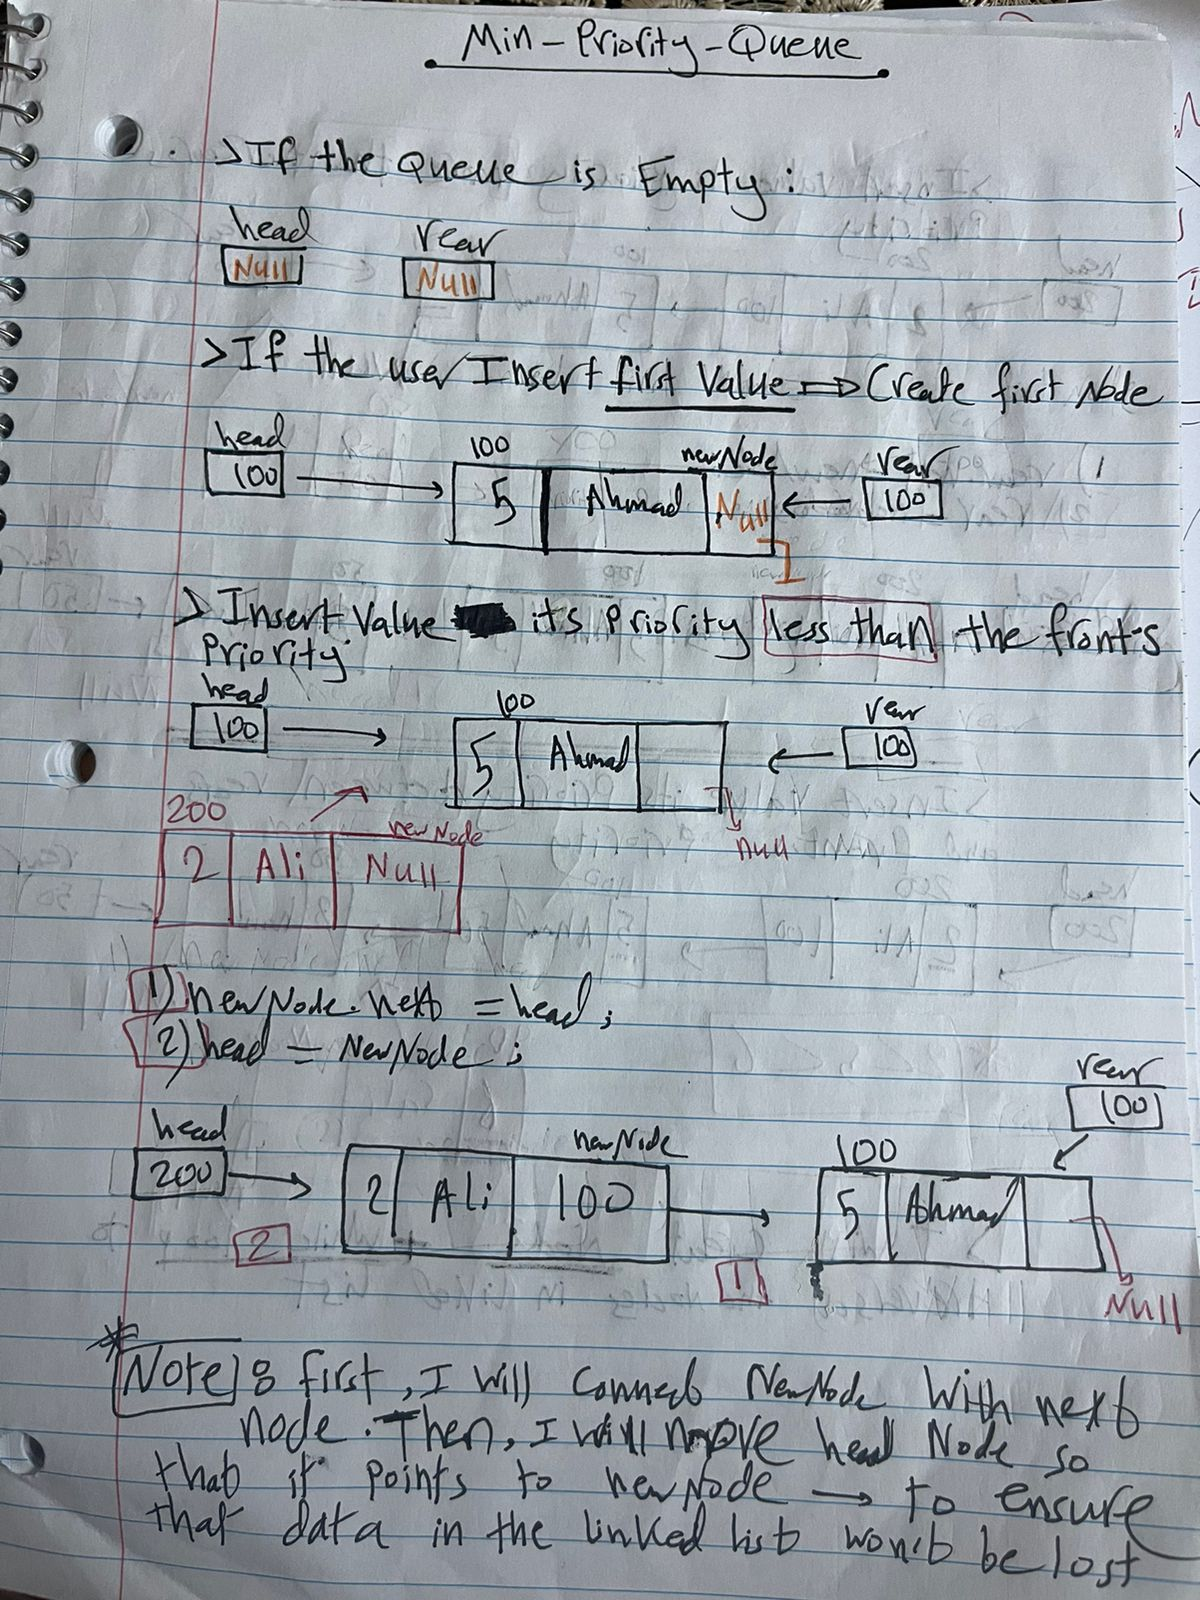 Min-Priority-Queue
>If the Queue is Empty:
head rear
Null Null
>If the user Insert first Value => Create first Node
head 100 newNode rear
100 5 Ahmad Null 100
> Insert Value its Priority less than the front's
Priority
head 100 rear
100 5 Ahmad 100
null
200 newNode
2 Ali Null
1) newNode.next = head;
2) head = NewNode;
rear
100
head newNode 100
200 2 Ali 100 5 Ahmad
2 1 Null
*Note: first, I will connect NewNode with next
node. Then, I will move head Node so
that it points to newNode → to ensure
that data in the linked list won't be lost